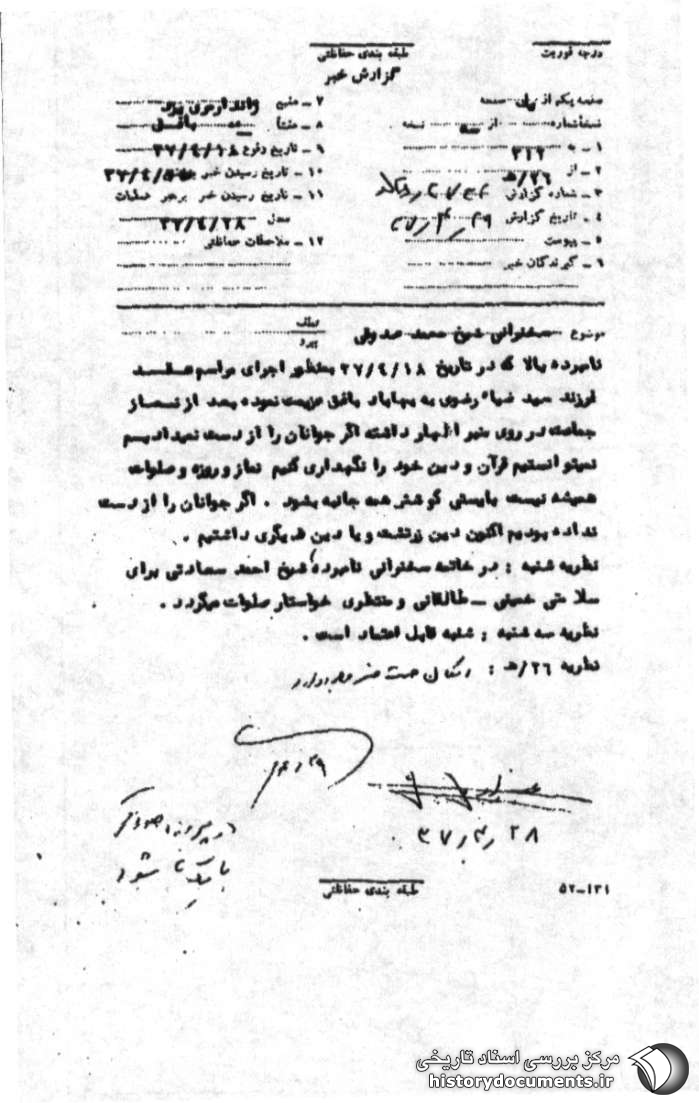 درجه فوریت
طبقه بندی حفاظتی
گزارش خبر
صفحه یکم از یک صفحه
نسخه شماره از سه نسخه
۱ - به ۳۱۲
۲ - از ۲۶/هـ
۳ - شماره گزارش
۴ - تاریخ گزارش ۳۷٫۴٫۲۹
۵ - پیوست
۶ - گیرندگان خبر
۷ - منبع ژاندارمری یزد
۸ - منشأ بافق
۹ - تاریخ وقوع ۳۷/۴/۱۸
۱۰ - تاریخ رسیدن خبر
۱۱ - تاریخ رسیدن خبر برهبر عملیات
محل ۳۷/۴/۲۸
۱۲ - ملاحظات حفاظتی
موضوع سخنرانی شیخ محمد صدوقی
نامبرده بالا که در تاریخ ۳۷/۴/۱۸ بمنظور اجرای مراسم عقد
فرزند سید ضیاء رضوی به بهاباد بافق عزیمت نموده بعد از نماز
جماعت در روی منبر اظهار داشته اگر جوانان را از دست نمیدادیم
نمیتوانستیم قرآن و دین خود را نگهداری کنیم نماز و روزه و صلوات
همیشه نیست بایستی کوشش همه جانبه بشود . اگر جوانان را از دست
نداده بودیم اکنون دین زرتشت و یا دین دیگری داشتیم .
نظریه شنبه : در خاتمه سخنرانی نامبرده شیخ احمد سعادتی برای
سلامتی خمینی - طالقانی و منتظری خواستار صلوات میگردد .
نظریه سه شنبه : شنبه قابل اعتماد است .
نظریه ۲۶/هـ : امکان صحت خبر وجود دارد
۴٫۲۹
۳۷٫۴٫۲۸
در پرونده صدوقی
بایگانی شود
طبقه بندی حفاظتی
۵۲-۱۳۱
مرکز بررسی اسناد تاریخی
historydocuments.ir